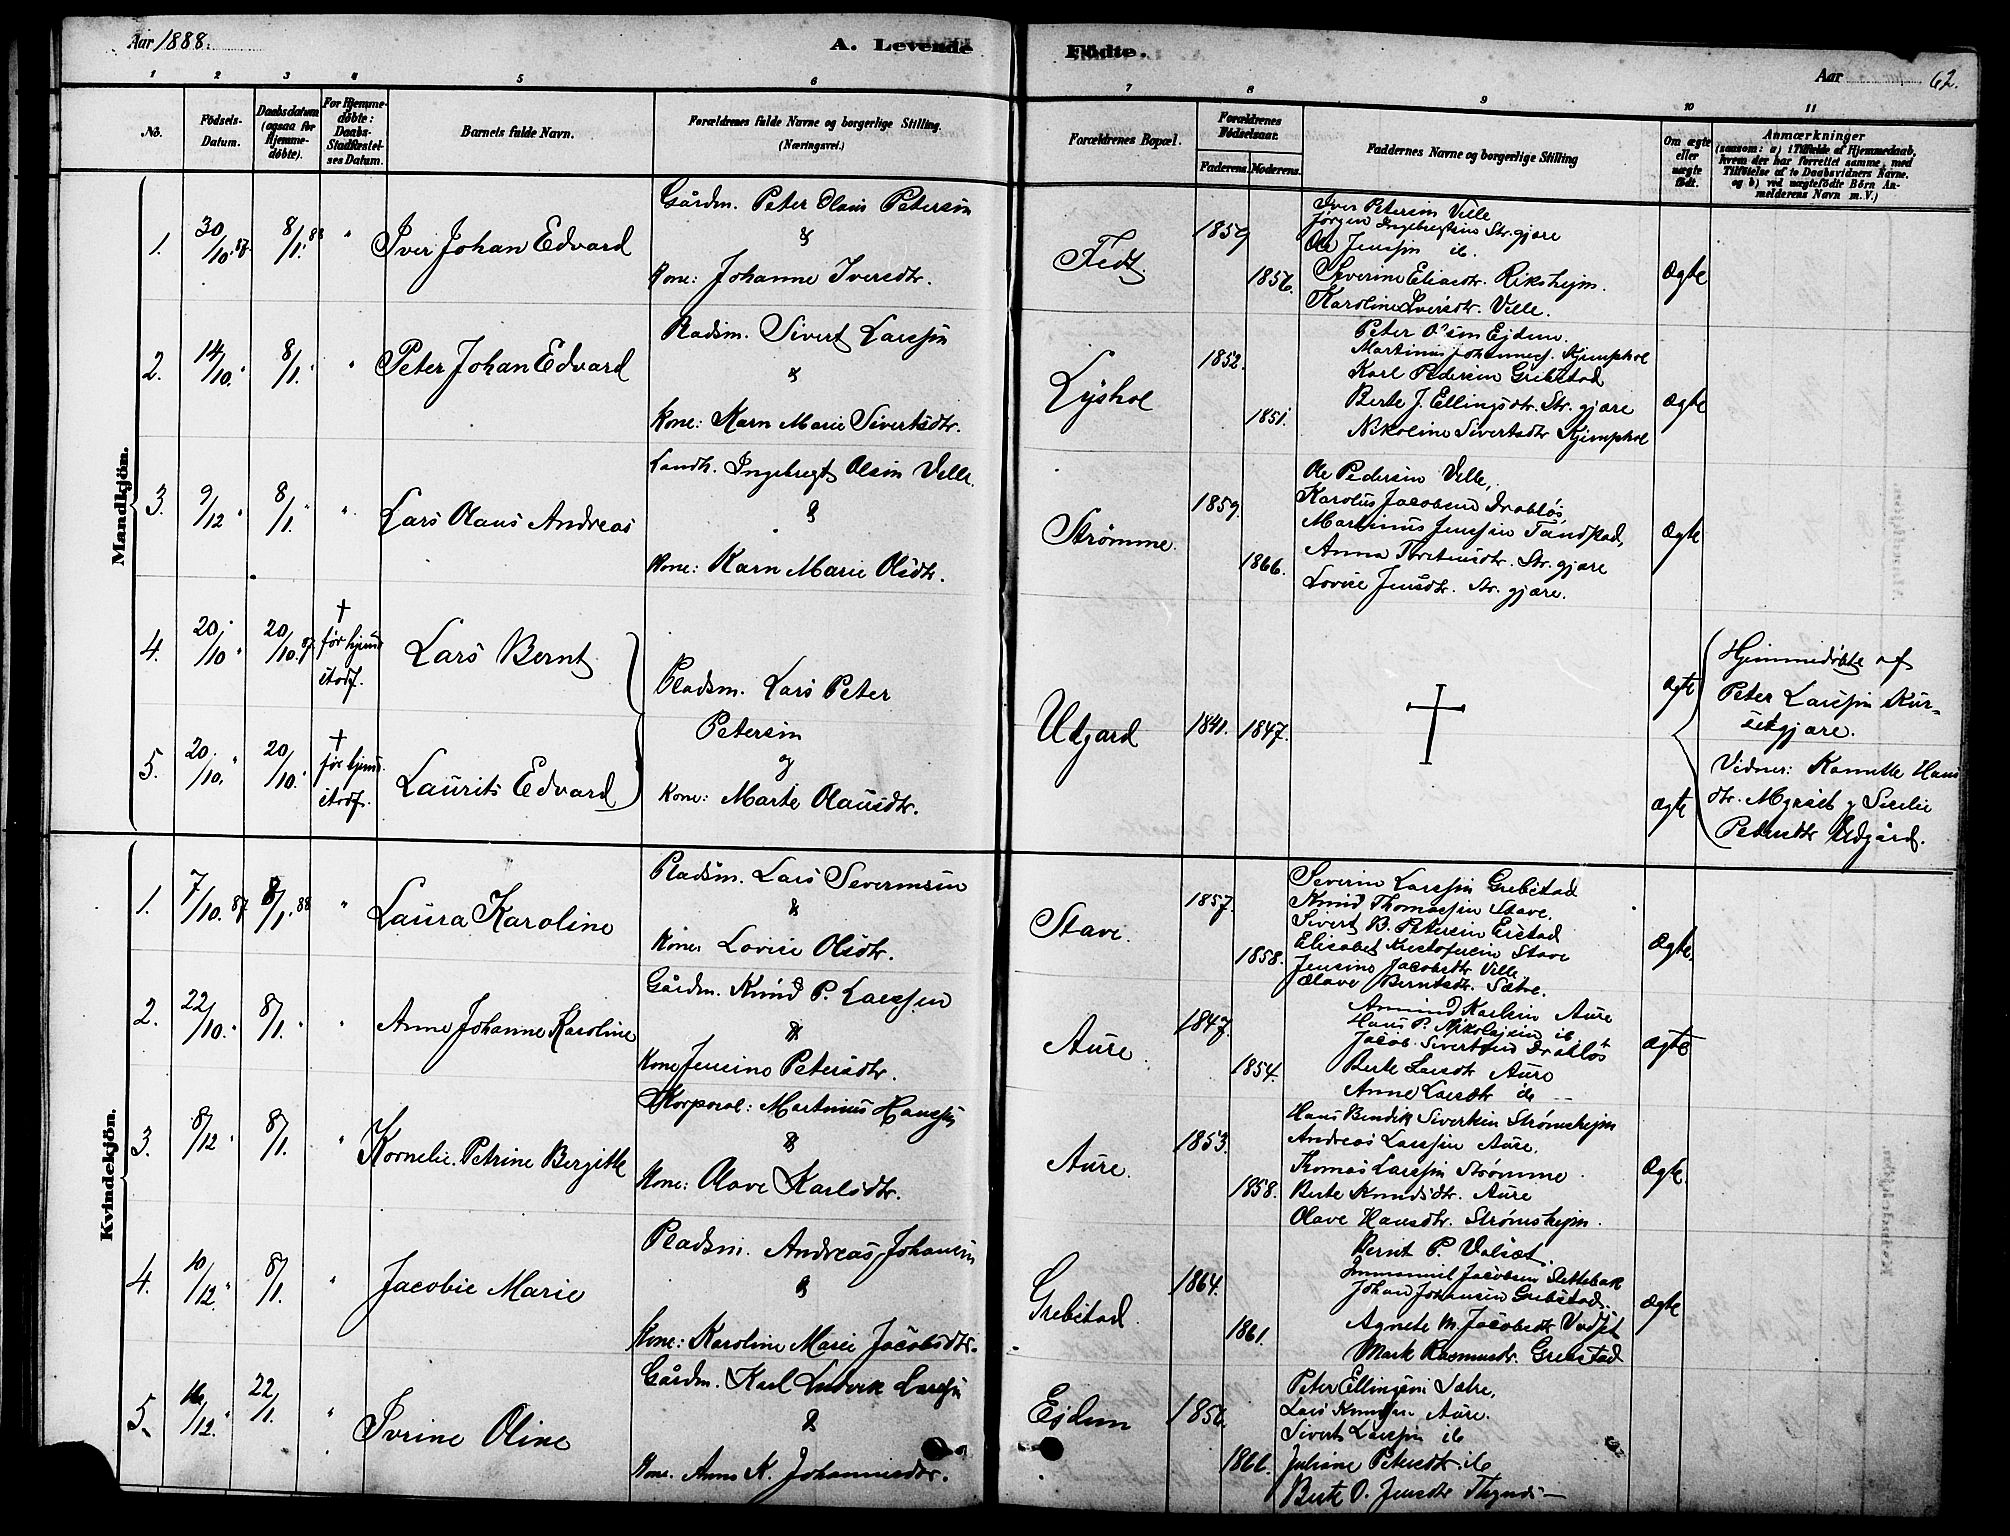 Aar 1888.
A. Levende
Fødte.
Aar
62.
1 2 3 4 5 6 7 8 9 10 11
No.
Fødsels-
Datum.
Daabsdatum
(ogsaa for
Hjemme-
døbte).
For Hjemme-
døbte:
Daabs-
Stadfæstel-
ses Datum.
Barnets fulde Navn.
Forældrenes fulde Navne og borgerlige Stilling.
(Næringsvei.)
Forældrenes Bopæl.
Forældrenes
Fødselsaar.
Faderens. Moderens.
Faddernes Navne og borgerlige Stilling
Om ægte
eller
uægte
født.
Anmærkninger
(saasom: a) i Tilfælde af Hjemmedaab,
hvem der har forrettet samme, med
Tilføielse af to Daabsvidners Navne.
og b) ved uægtefødte Børn An-
melderens Navn m. V.)
Mandkjön.
1. 30/10. 87. 8/1. 88 " Iver Johan Edvard
Gårdm. Peter Olaus Petersen
&
Kone: Johanne Iversdtr.
Fedt. 1859 1856.
Iver Petersen Velle
Jørgen Ingebregtsen Str.gjære
Ole Jenssen ib.
Severine Eliasdtr. Riksheim.
Karoline Iversdtr. Velle.
Ægte
2. 14/10. " 8/1. " " Peter Johan Edvard
Pladsm. Sivert Larssen
&
Kone: Karn Marie Sivertsdtr.
Lyshol 1852. 1851.
Peter O'sen Ejdem.
Martinus Johannes. Kjemphol
Karl Pedersen Grebstad
Berte J. Ellingsdtr. Str. gjære
Nikoline Sivertsdtr Kjemphol
Ægte
3. 9/12 " 8/1. " " Lars Olaus Andreas
Landh. Ingebregt Olsen Velle.
&
Kone: Karn Marie Olsdtr.
Strømme. 1859. 1866.
Ole Pedersen Velle,
Karolus Jacobsen Drabløs,
Martinus Jenssen Tandstad,
Anna Tortensdtr. Str. gjære
Lovise Jensdtr. Str. gjære.
Ægte
4. 20/10 " 20/10. 87. † før hjem stadf. Lars Bernt
5. 20/10. " 20/10. " † før hjem. stadf. Laurits Edvard
Pladsm. Lars Peter
Petersen
og
Kone: Marte Olausdtr.
Udgard 1841. 1847.
Ægte
Ægte
Hjemmedøbte af
Peter Larssen Kur-
setgjære.
Vidner: Kamille Hans
dtr. Myrset & Sicilie
Pedersdtr Udgård.
Kvindekjön.
1. 7/10. 87. 8/1. 88 " Laura Karoline
Pladsm. Lars Severinsen
&
Kone: Lovise Olsdtr.
Stave. 1857. 1858.
Severin Larssen Grebstad
Knud Thomassen Stave.
Sivert B. Petersen Erstad
Elisabet Kristofersen Stave
Jensine Jacobsdtr Velle.
Olave Berntsdtr. Sætre.
Ægte.
2. 22/10. " 8/1. " " Anne Johanne Karoline
Gårdm. Knud P. Larssen
&
Kone Jensine Petersdtr.
Aure. 1847. 1854.
Amund Karlsen Aure
Hans P. Nikolajsen ib.
Jacob Sivertsen Drabløs
Berte Larsdtr Aure
Anne Larsdtr ib
Ægte
3. 8/12 " 8/1. " Kornelie. Petrine Bergitte
Korporal: Martinus Hanssen
&
Kone: Olave Karlsdtr.
Aure. 1853. 1858.
Hans Bendik Sivertsen Strømshejm
Andreas Larssen Aure.
Thomas Larssen Strømme.
Berte Knudsdtr. Aure
Olave Hansdtr. Strømshejm.
Ægte.
4. 10/12. " 8/1. " Jacobie Marie
Pladsm. Andreas Johansen
&
Kone: Karoline Marie Jacobsdtr.
Grebstad. 1864. 1861.
Bernt P. Valset.
Immanuel Jacobsen Slettebak
Johan Johansen Grebstad.
Agnete M. Jacobsdtr Vadset
Mark Rasmusdtr. Grebstad
Ægte
5. 16/12. " 22/1. " Ivrine Oline
Gårdm. Karl Ludvik Larssen
&
Kone. Anne K. Johannesdtr.
Ejdem 1856. 1866.
Peter Ellingsen Sætre,
Lars Knudsen Aure.
Sivert Larssen ib
Juliane Petersdtr. ib
Berte O. Jensdtr Thynes